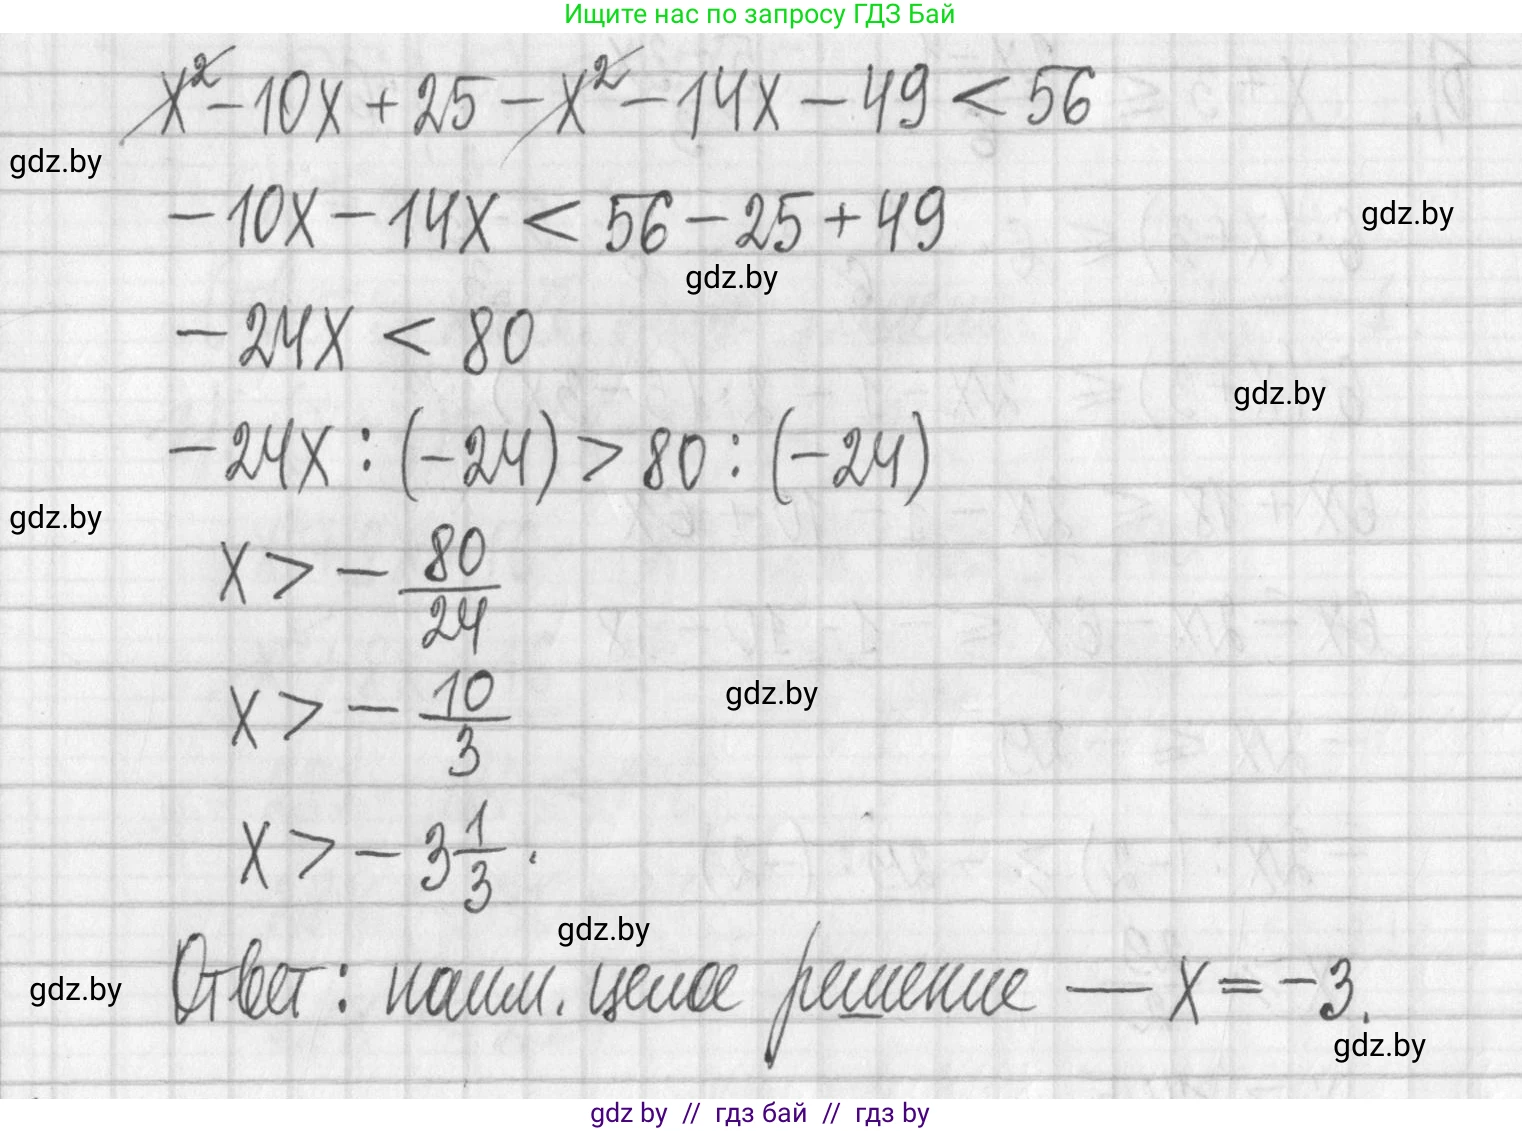 Ищите нас по запросу ГДЗ Бай
x² - 10x + 25 - x² - 14x - 49 < 56
gdz.by
- 10x - 14x < 56 - 25 + 49
gdz.by
gdz.by
- 24x < 80
gdz.by
- 24x : (-24) > 80 : (-24)
gdz.by
x > - 80/24
x > - 10/3
gdz.by
x > - 3 1/3 .
gdz.by
Ответ: наим. целое решение — x = -3.
gdz.by
gdz.by
gdz by // гдз бай // гдз by